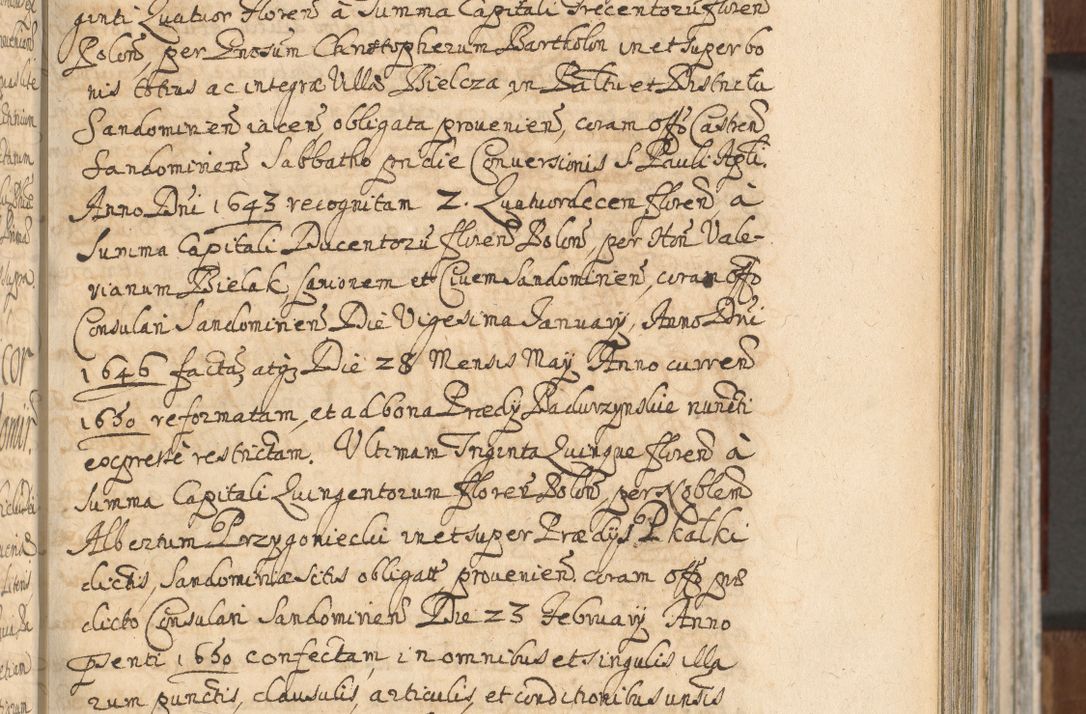 ginti Quatuor Floren à Summa Capitali Trecentoru floren
Polon, per Gnosum Christopherum Bartholon in et super bo
nis totius ac integræ Villæ Bielcza, in Paltu et Districtu
Sandomirien iacen obligata provenien, coram Offo Castren
Sandomirien Sabbatho pridie Conversionis S. Pauli Apli.
Anno Dni 1643 recognitam 2. Quatuordecem floren à
Summa Capitali Ducentoru floren Polon, per Hon Vale-
rianum Bielak sartorem et Civem Sandomirien, coram Offo
Consulari Sandomirien Die Vigesima January, Anno Dni
1646 facta, atq3 Die 28 Mensis May Anno curren
1650 reformatam, et ad bona Prædy Badurzynskie nuncti
expresse restrictam. Ultimam Triginta Quinque floren à
Summa Capitali Quingentorum floren Polon, per Noblem
Albertum Przygonieclii in et super Prædijs Pkalki
dictis, Sandomiriæ sitis obligatt provenien. coram Offo præ
dicto Consulari Sandomirien Die 23 February Anno
psenti 1650 confectam, in omnibus et singulis illa
rum punctis, clausulis, articulis, et conditionibus